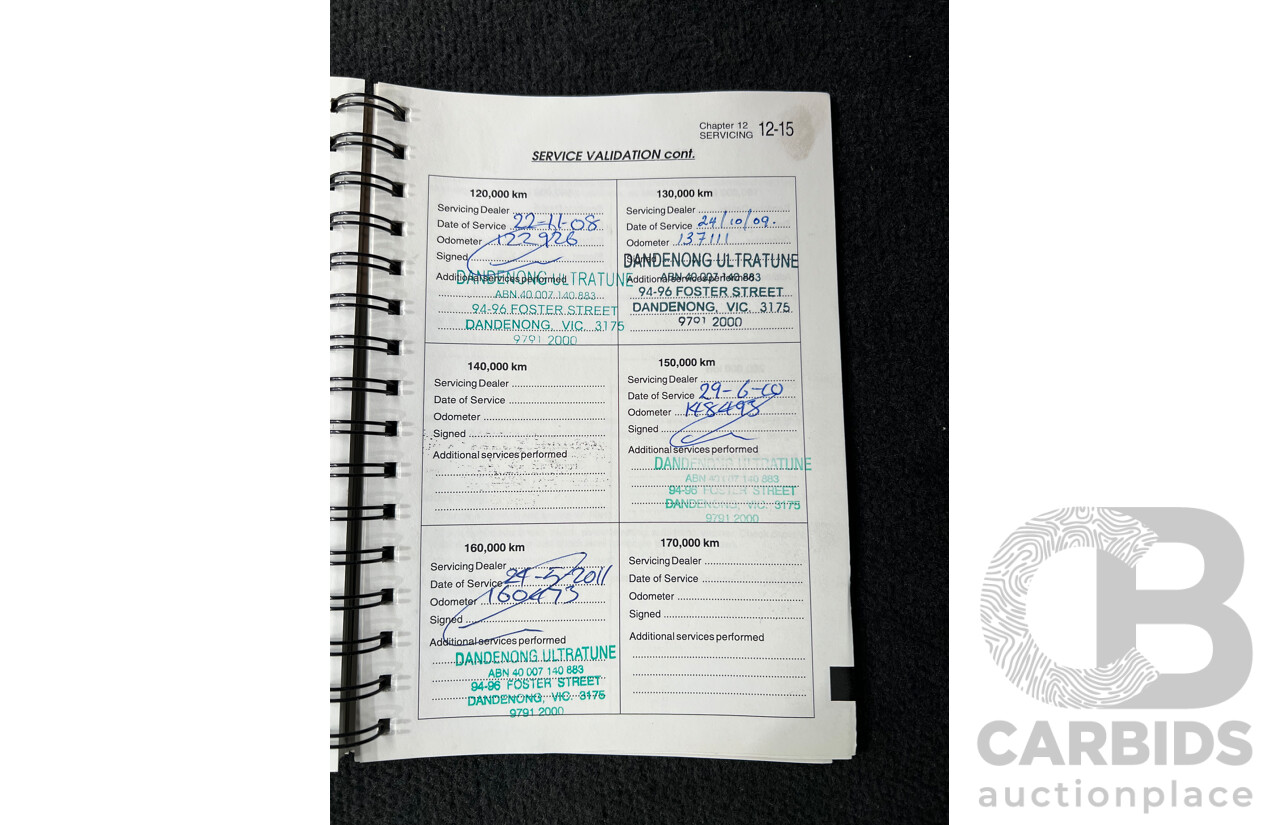 Chapter 12
SERVICING 12-15
SERVICE VALIDATION cont.
120,000 km
Servicing Dealer
Date of Service 22-11-08
Odometer 122926
Signed
Additional services performed
DANDENONG ULTRATUNE
ABN 40 007 140 883
94-96 FOSTER STREET
DANDENONG, VIC. 3175
9791 2000
130,000 km
Servicing Dealer
Date of Service 24/10/09.
Odometer 137111
Signed
DANDENONG ULTRATUNE
Additional services performed
ABN 40 007 140 883
94-96 FOSTER STREET
DANDENONG, VIC. 3175
9791 2000
140,000 km
Servicing Dealer
Date of Service
Odometer
Signed
Additional services performed
150,000 km
Servicing Dealer
Date of Service 29-6-10
Odometer 148493
Signed
Additional services performed
DANDENONG ULTRATUNE
ABN 40 007 140 883
94-96 FOSTER STREET
DANDENONG, VIC. 3175
9791 2000
160,000 km
Servicing Dealer
Date of Service 24-5-2011
Odometer 160473
Signed
Additional services performed
DANDENONG ULTRATUNE
ABN 40 007 140 883
94-96 FOSTER STREET
DANDENONG, VIC. 3175
9791 2000
170,000 km
Servicing Dealer
Date of Service
Odometer
Signed
Additional services performed
CB
CARBIDS
auctionplace